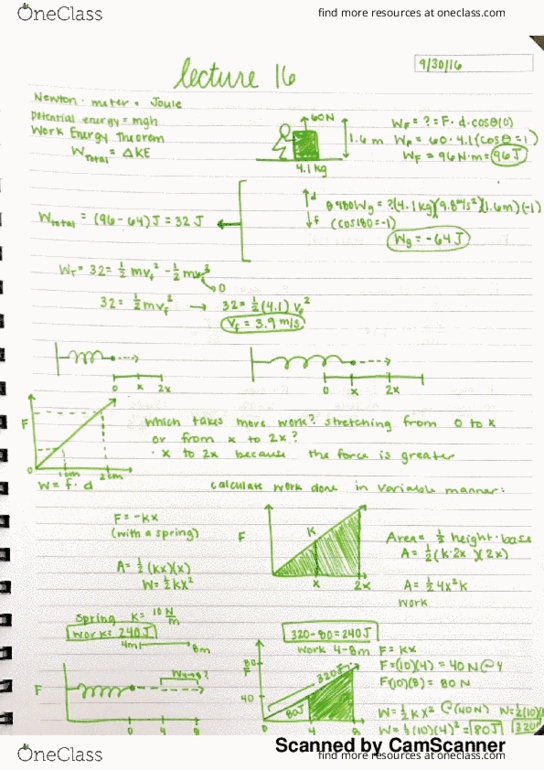 OneClass
find more resources at oneclass.com
9/30/16
lecture 16
Newton · meter = Joule
Potential energy = mgh
Work Energy Theorem
W Total = ΔKE
60N
1.6 m
4.1 kg
WF = ? = F · d · cosθ(0)
WF = 60 · 4.1 (cosθ = 1)
WF = 96 N·m = 96 J
Wtotal = (96 - 64) J = 32 J
d
f
Wg = ? (4.1 kg)(9.8 m/s²)(1.6m)(-1)
(cos180 = -1)
Wg = -64 J
WT = 32 = ½ mvf² - ½ mv²
→ 0
32 = ½ mvf² → 32 = ½ (4.1) vf²
Vf = 3.9 m/s
0 x 2x
0 x 2x
F
Which takes more work? stretching from 0 to x
or from x to 2x?
· x to 2x because the force is greater
0 1cm 2cm
W = f · d
calculate work done in variable manner:
F = -kx
(with a spring)
A = ½ (kx)(x)
W = ½ kx²
F
K
x 2x
Area = ½ height · base
A = ½ (k·2x)(2x)
A = ½ 4x²k
Work
Spring K = 10 N/m
Work = 240 J
4m 8m
F
0 4 8
320 - 80 = 240 J
Work 4-8m
F = kx
F = (10)(4) = 40 N @ 4
F(10)(8) = 80 N
80
F
40
320J
80J
0 4 8
W = ½ kx² @ (40N)
W = ½ (10)(4)² = 80 J
W = ½ (10)
320
Scanned by CamScanner
OneClass
find more resources at oneclass.com